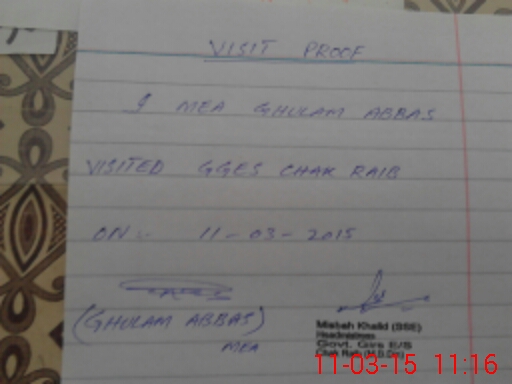 VISIT PROOF
I MEA GHULAM ABBAS
VISITED GGES CHAK RAIB
ON:- 11-03-2015
(GHULAM ABBAS)
MEA
Misbah Khalid (SSE)
Headmistress
Govt. Girs E/S
Chak Raib (M.B.Din)
11-03-15 11:16